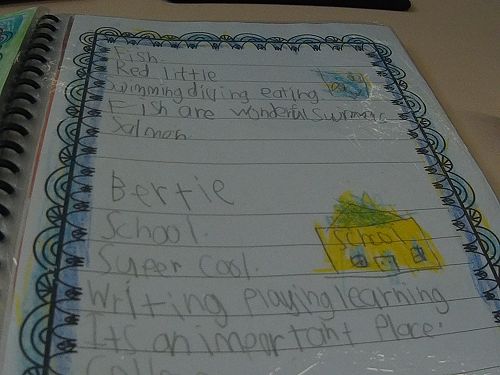 Fish.
Red little
Swimming diving eating.
Fish are wonderful swimmers.
Salmon.
Bertie
School.
School
Super cool.
Writing playing learning
Its an important place.